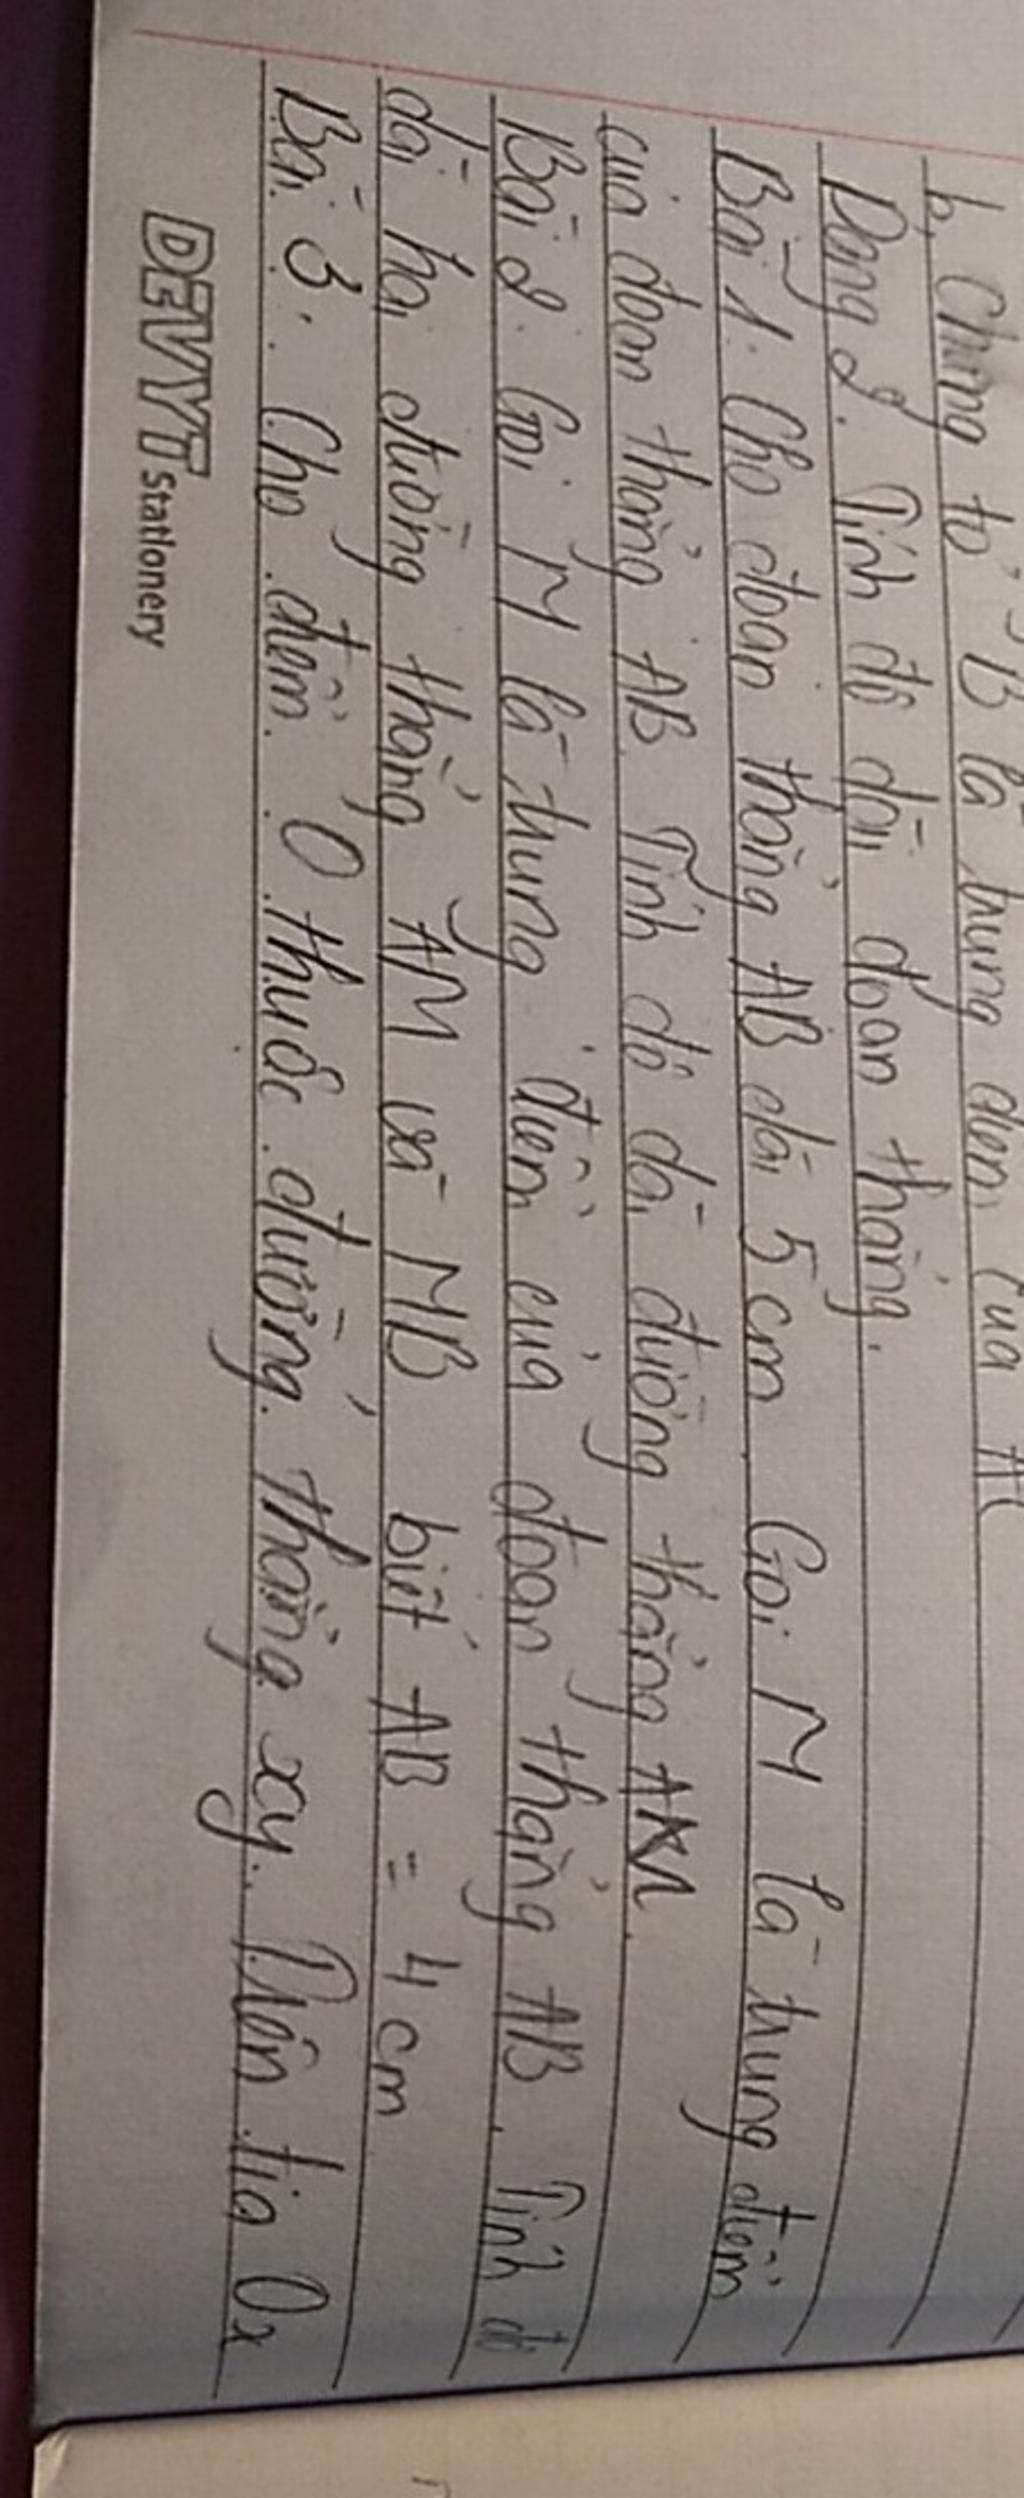 b, Chứng tỏ B là trung điểm của AC
Dạng 2. Tính độ dài đoạn thẳng.
Bài 1: Cho đoạn thẳng AB dài 5cm. Gọi M là trung điểm
của đoạn thẳng AB. Tính độ dài đường thẳng AM.
Bài 2. Gọi M là trung điểm của đoạn thẳng AB. Tính độ
dài hai đường thẳng AM và MB biết AB = 4cm
Bài 3. Cho điểm O thuộc đường thẳng xy. Trên tia Ox
DEVYT Stationery